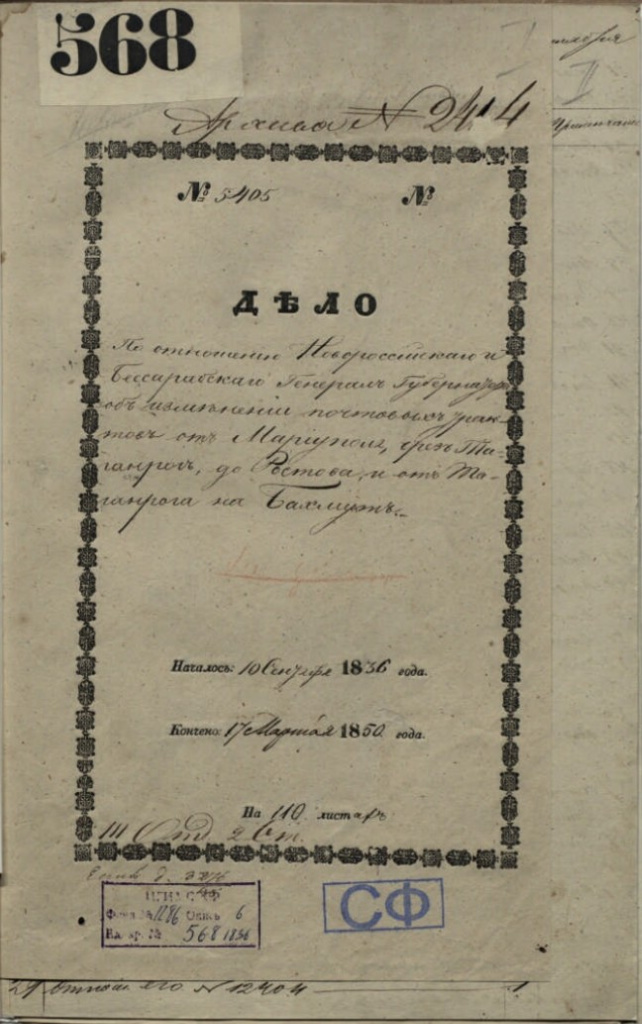 568
Архива № 2414
№ 5405 №
ДѢЛО
По отношенію Новороссійскаго и
Бессарабскаго Генералъ Губернатора
объ измѣненіи почтовыхъ трак-
товъ отъ Маріуполя, чрезъ Та-
ганрогъ, до Ростова, и отъ Та-
ганрога на Бахмутъ.
Началось: 10 Сентября 1836 года.
Кончено: 17 Марта 1850 года.
На 110 листахъ
III Отд. 2 Ст.
Фонд № 1286 Опись 6
Ед. хр. № 568 1836
СФ
№ 12404
1
II